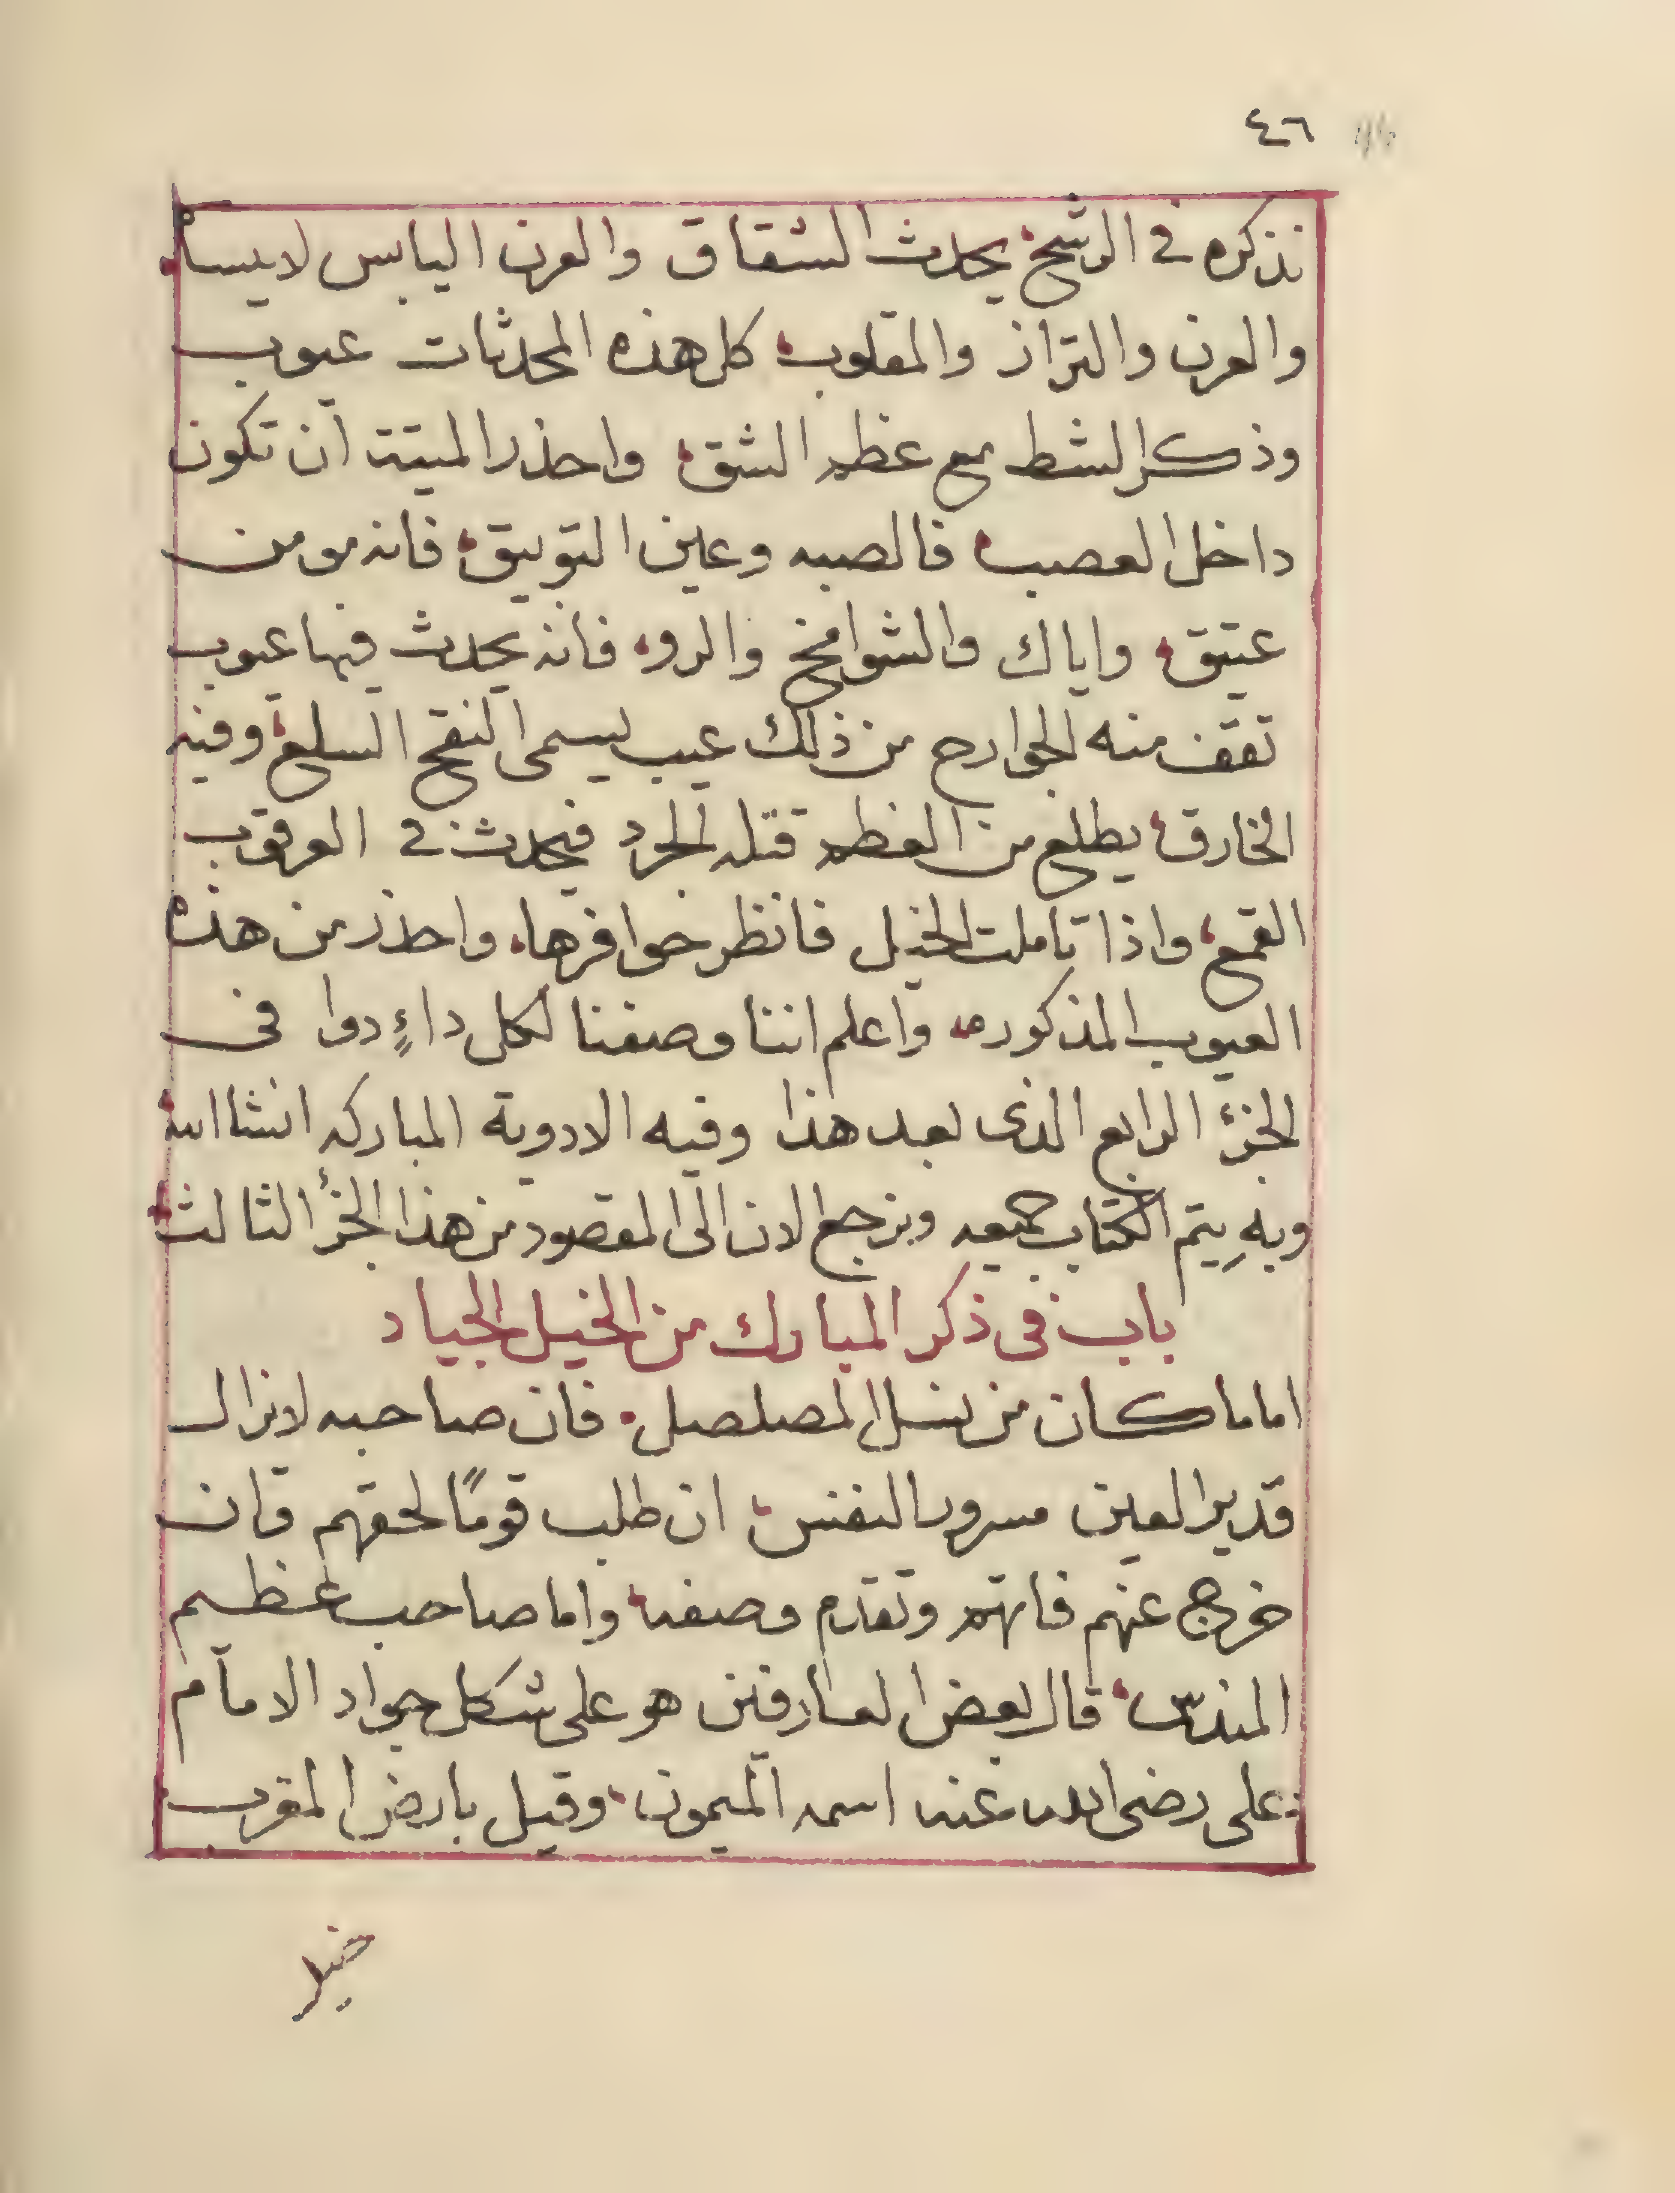 ٤٦
نذكره في الرشح يحدث الشقاق والعرن اليابس لا يسيل
والعرن والتراز والمقلوب كل هذه المحدثات عيوب
وذكر الشط مع عظم الشق واحذر الميتة ان تكون
داخل العصب فالصبه وعين التوييق فانه مو من
عتيق واياك والشوامخ والرو فانه يحدث فيها عيوب
تقف منه الجوارح من ذلك عيب يسمى النقح السلع وفيه
الخارق يطلع من العظم قتله الجرد فيحدث في العرقوب
القمع واذا تاملت الخيل فانظر حوافرها واحذر من هذه
العيوب المذكوره واعلم اننا وصفنا لكل داءٍ دوا فى
الجزء الرابع الذى بعد هذا وفيه الادوية المباركه انشا الله
وبهِ يتم الكتاب جميعه ونرجع الان الى المقصود من هذا الجزء الثالث
باب فى ذكر المبارك من الخيل الجياد
اما ما كان من نسل المصلصل فان صاحبه لا يزال
قدير العين مسرور النفس ان طلب قومًا لحقهم وان
خرج عنهم فاتهم وتقدم وصفنا واما صاحب عظيم
المندس قال بعض العارفين هو على شكل جواد الامام
على رضى الله عنه اسمه الميمون وقيل بارض المغرب
خيل